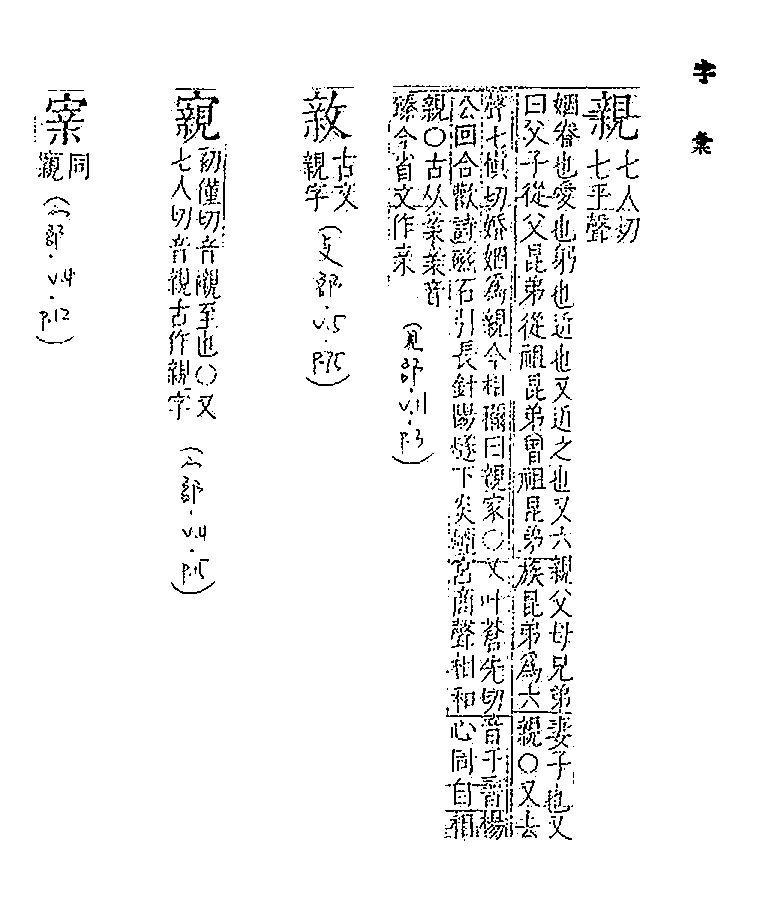 字彙
親
七人切
七平聲
姻眷也愛也躬也近也又近之也又六親父母兄弟妻子也又
曰父子從父昆弟從祖昆弟曾祖昆弟族昆弟為六親○又去
聲七慎切婚姻為親今相爾曰親家○又叶蒼先切音千晉楊
公回合歡詩磁石引長針陽燧下炎煙宮商聲相和心同自相
親○古从亲亲音
臻今省文作亲
(見部·V.11·P.3)
古文
親字
(攴部·V.5·P.75)
寴
初僅切音櫬至也○又
七人切音親古作親字
(宀部·V.4·P.15)
同
寴
(宀部·V.4·P.12)